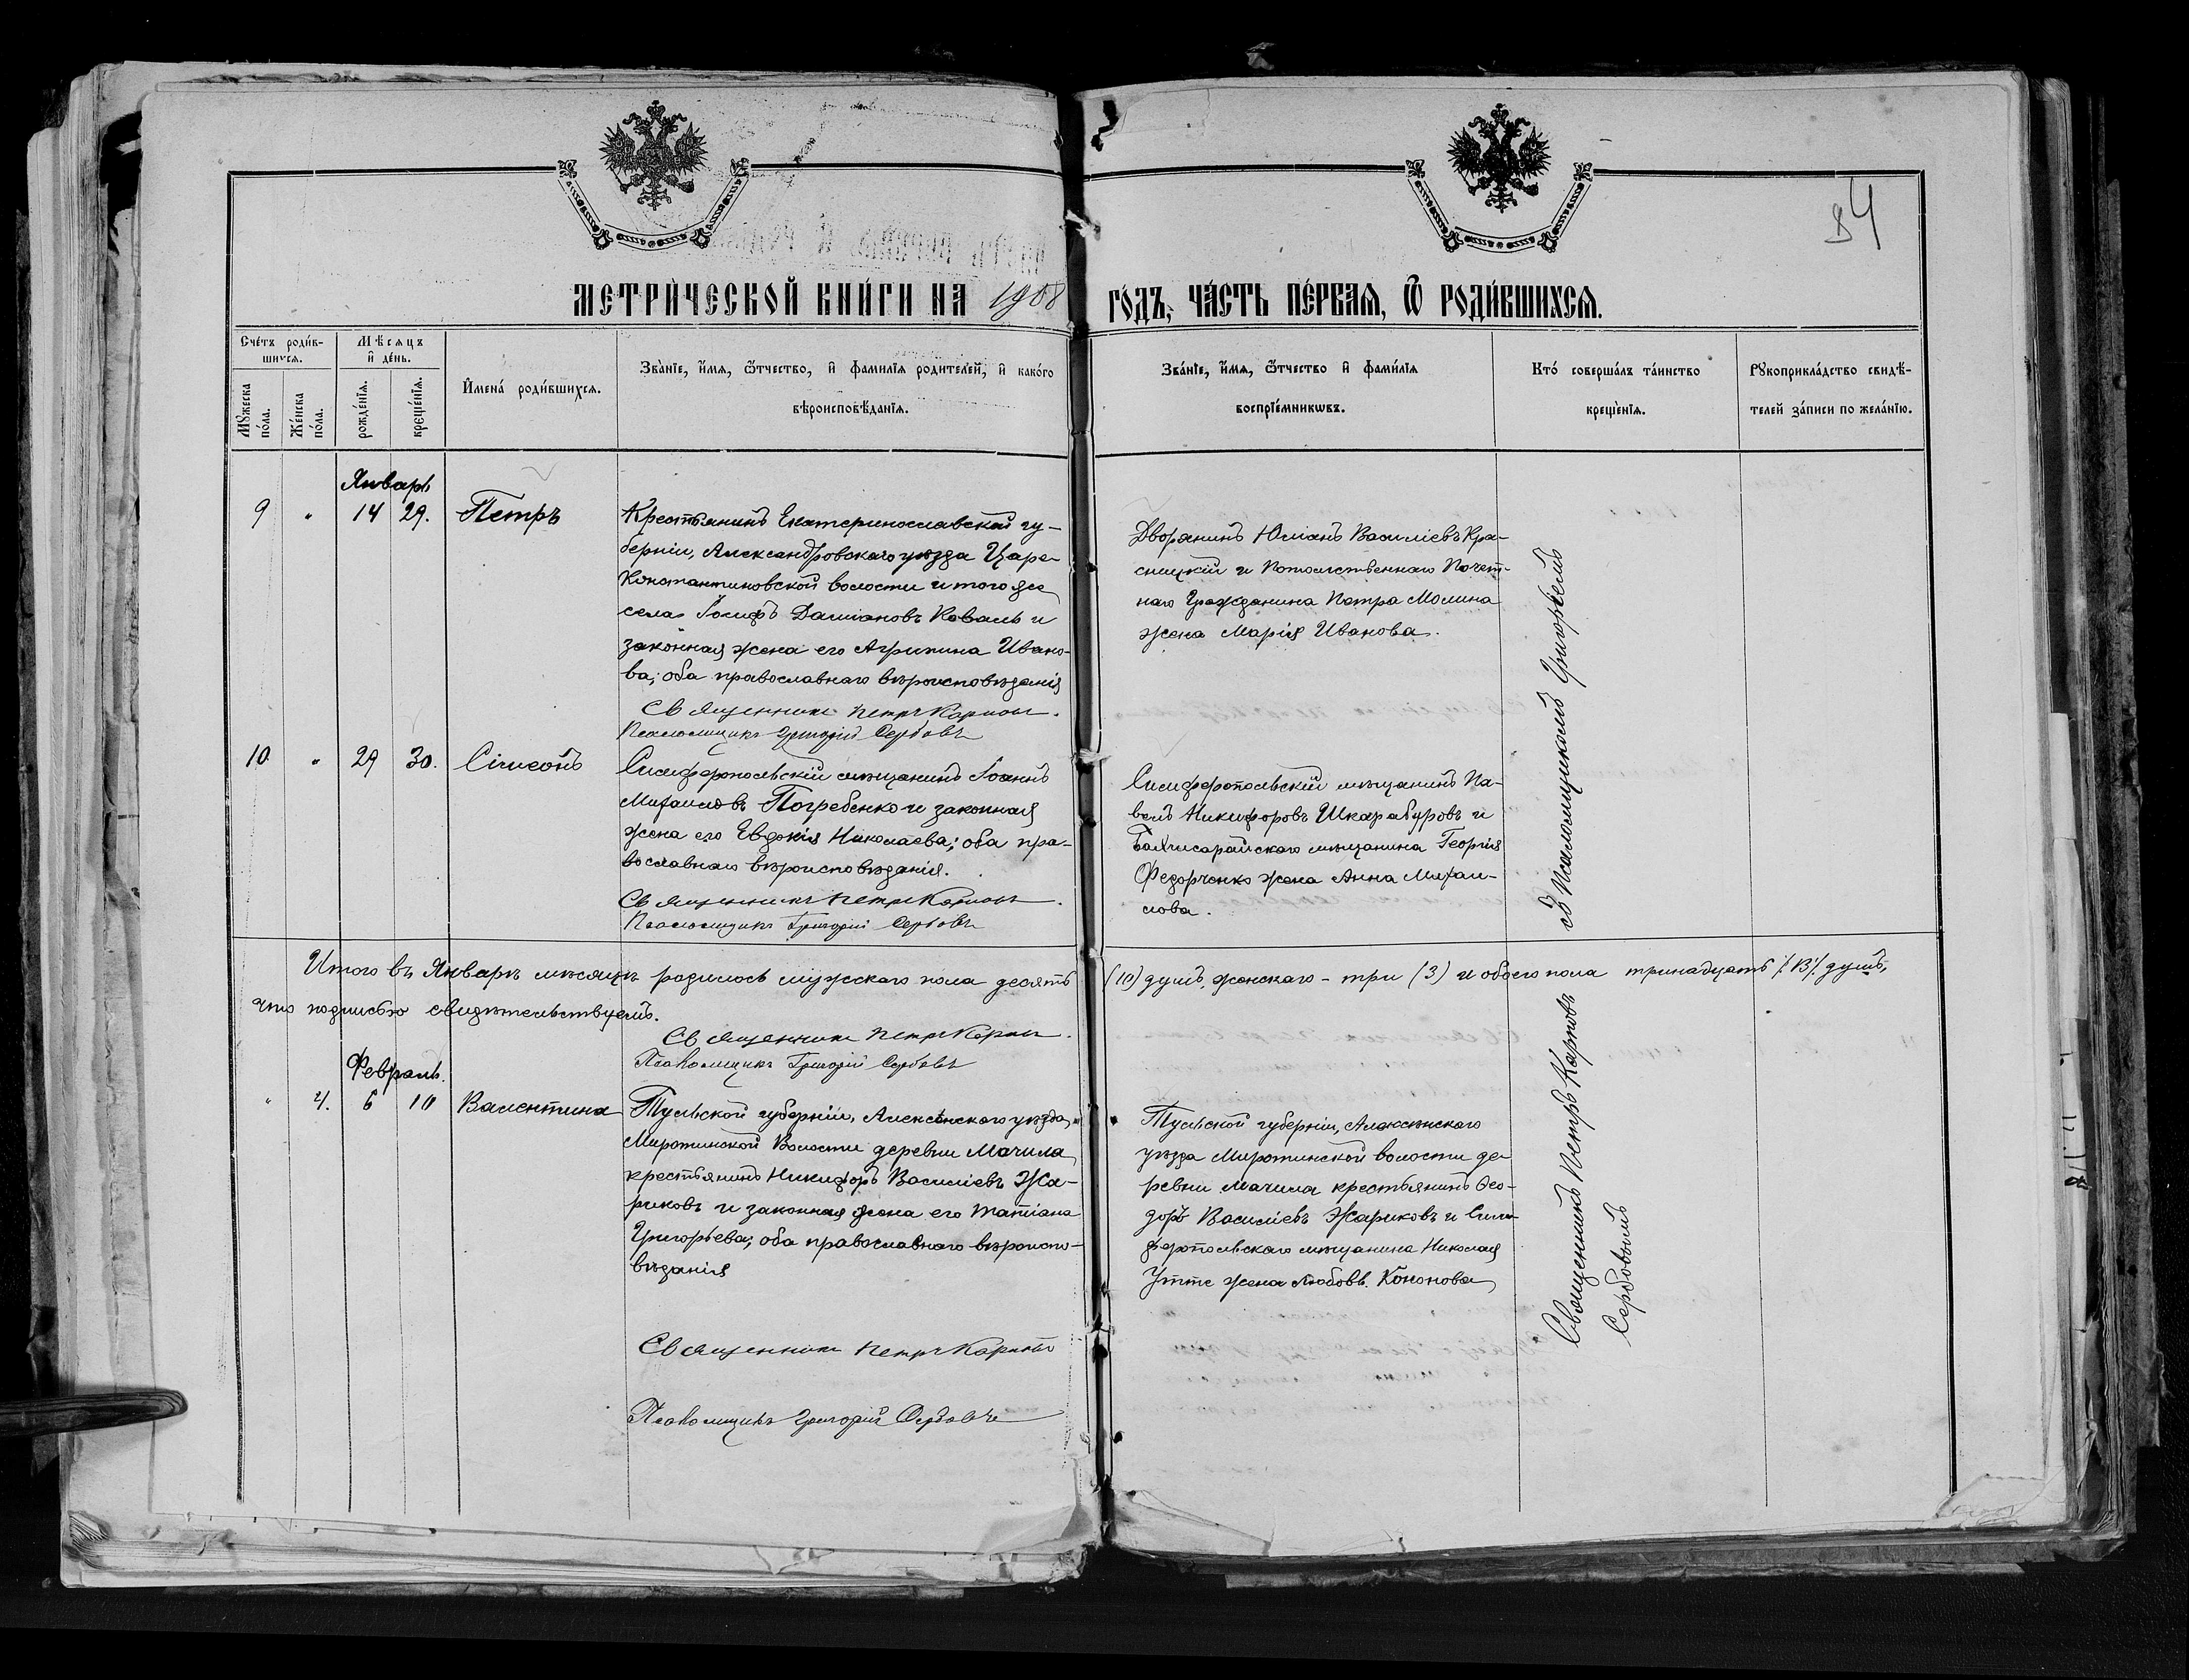 84
МЕТРИ́ЧЕСКОЙ КНИ́ГИ НА 1908 ГО́ДЪ, ЧА́СТЬ ПЕ́РВАЯ, Ѿ РОДИ́ВШИХСЯ.
Сче́тъ роди́в-
шихся.
Мꙋжеска по́ла.
Же́нска по́ла.
Мѣсяцъ
и де́нь.
рожде́нїя.
креще́нїя.
Имена́ роди́вшихся.
Зва́нїе, и́мя, ѻ́тчество, и фами́лїя роди́телей, и како́го
вѣроисповѣ́данїя.
Зва́нїе, и́мя, ѻ́тчество и фами́лїя
воспрїе́мникѡвъ.
Кто́ соверша́лъ та́инство
креще́нїя.
Рꙋкоприкла́дство свидѣ́-
телей за́писи по жела́нїю.
Январь
9 " 14 29. Петръ
Крестьянинъ Екатеринославской гу-
берніи, Александровскаго уѣзда Царе-
Константиновской волости и того же
села Іосифъ Даміановъ Коваль и
законная жена его Агрипина Ивано-
ва; оба православнаго вѣроисповѣданія
Священникъ Петръ Карповъ.
Псаломщикъ Григорій Сербовъ
Дворянинъ Юліанъ Василіевъ Кра-
сницкій и Потомственнаго Почет-
наго Гражданина Петра Молина
жена Марія Иванова.
10 " 29 30. Сімеонъ
Симферопольскій мѣщанинъ Іоаннъ
Михаиловъ Погребенко и законная
жена его Евдокія Николаева; оба пра-
вославнаго вѣроисповѣданія.
Священникъ Петръ Карповъ.
Псаломщикъ Григорій Сербовъ
Симферопольскій мѣщанинъ Па-
велъ Никифоровъ Шкарабуровъ и
Бахчисарайскаго мѣщанина Георгія
Федорченко жена Анна Михаи-
лова.
Итого въ Январѣ мѣсяцѣ родилось мужскаго пола десять (10) душъ, женскаго - три (3) и обоего пола тринадцать /13/ душъ,
что подписью свидѣтельствуемъ.
Священникъ Петръ Карповъ.
Псаломщикъ Григорій Сербовъ
Февраль.
" 4. 6 10 Валентина
Тульской губерніи, Алексинскаго уѣзда,
Миротинской Волости деревни Мачила
крестьянинъ Никифоръ Василіевъ Жа-
риковъ и законная жена его Татіана
Григорьева; оба православнаго вѣроиспо-
вѣданія
Священникъ Петръ Карповъ
Псаломщикъ Григорій Сербовъ
Тульской губерніи, Алексинскаго
уѣзда Миротинской волости де-
ревни Мачила крестьянинъ Ѳео-
доръ Василіевъ Жариковъ и Сим-
феропольскаго мѣщанина Николая
Утте жена Любовь Кононова
Священникъ Петръ Карповъ съ Псаломщикомъ Григоріемъ
Сербовымъ